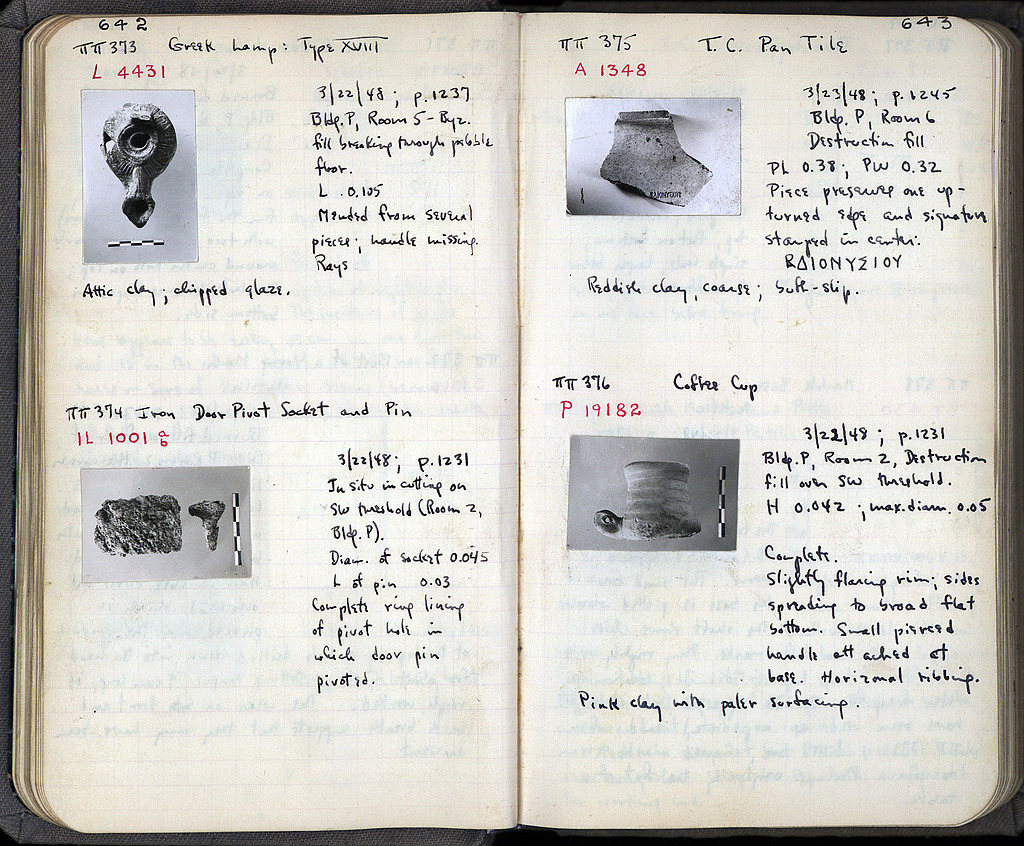 642
ΠΠ 373 Greek Lamp: Type XVIII
L 4431
3/22/48; p.1237
Bldg.P, Room 5 - Byz.
fill breaking through pebble
floor.
L .0.105
Mended from several
pieces; handle missing.
Rays
Attic clay, chipped glaze.
ΠΠ 374 Iron Door Pivot Socket and Pin
IL 1001
3/22/48; p.1231
In situ in cutting on
SW threshold (Room 2,
Bldg. P).
Diam. of socket 0.045
L of pin 0.03
Complete ring lining
of pivot hole in
which door pin
pivoted.
643
ΠΠ 375 T.C. Pan Tile
A 1348
3/23/48; p.1245
Bldg. P, Room 6
Destruction fill
PL 0.38; PW 0.32
Piece preserves one up-
turned edge and signature
stamped in center.
ΔΙΟΝΥΣΙΟΥ
Reddish clay, coarse; buff-slip.
ΠΠ 376 Coffee Cup
P 19182
3/22/48; p.1231
Bldg.P, Room 2, Destruction
fill over SW threshold.
H 0.042; max.diam. 0.05
Complete.
Slightly flaring rim; sides
spreading to broad flat
bottom. Small pierced
handle attached at
base. Horizonal ribbing.
Pink clay with paler surfacing.